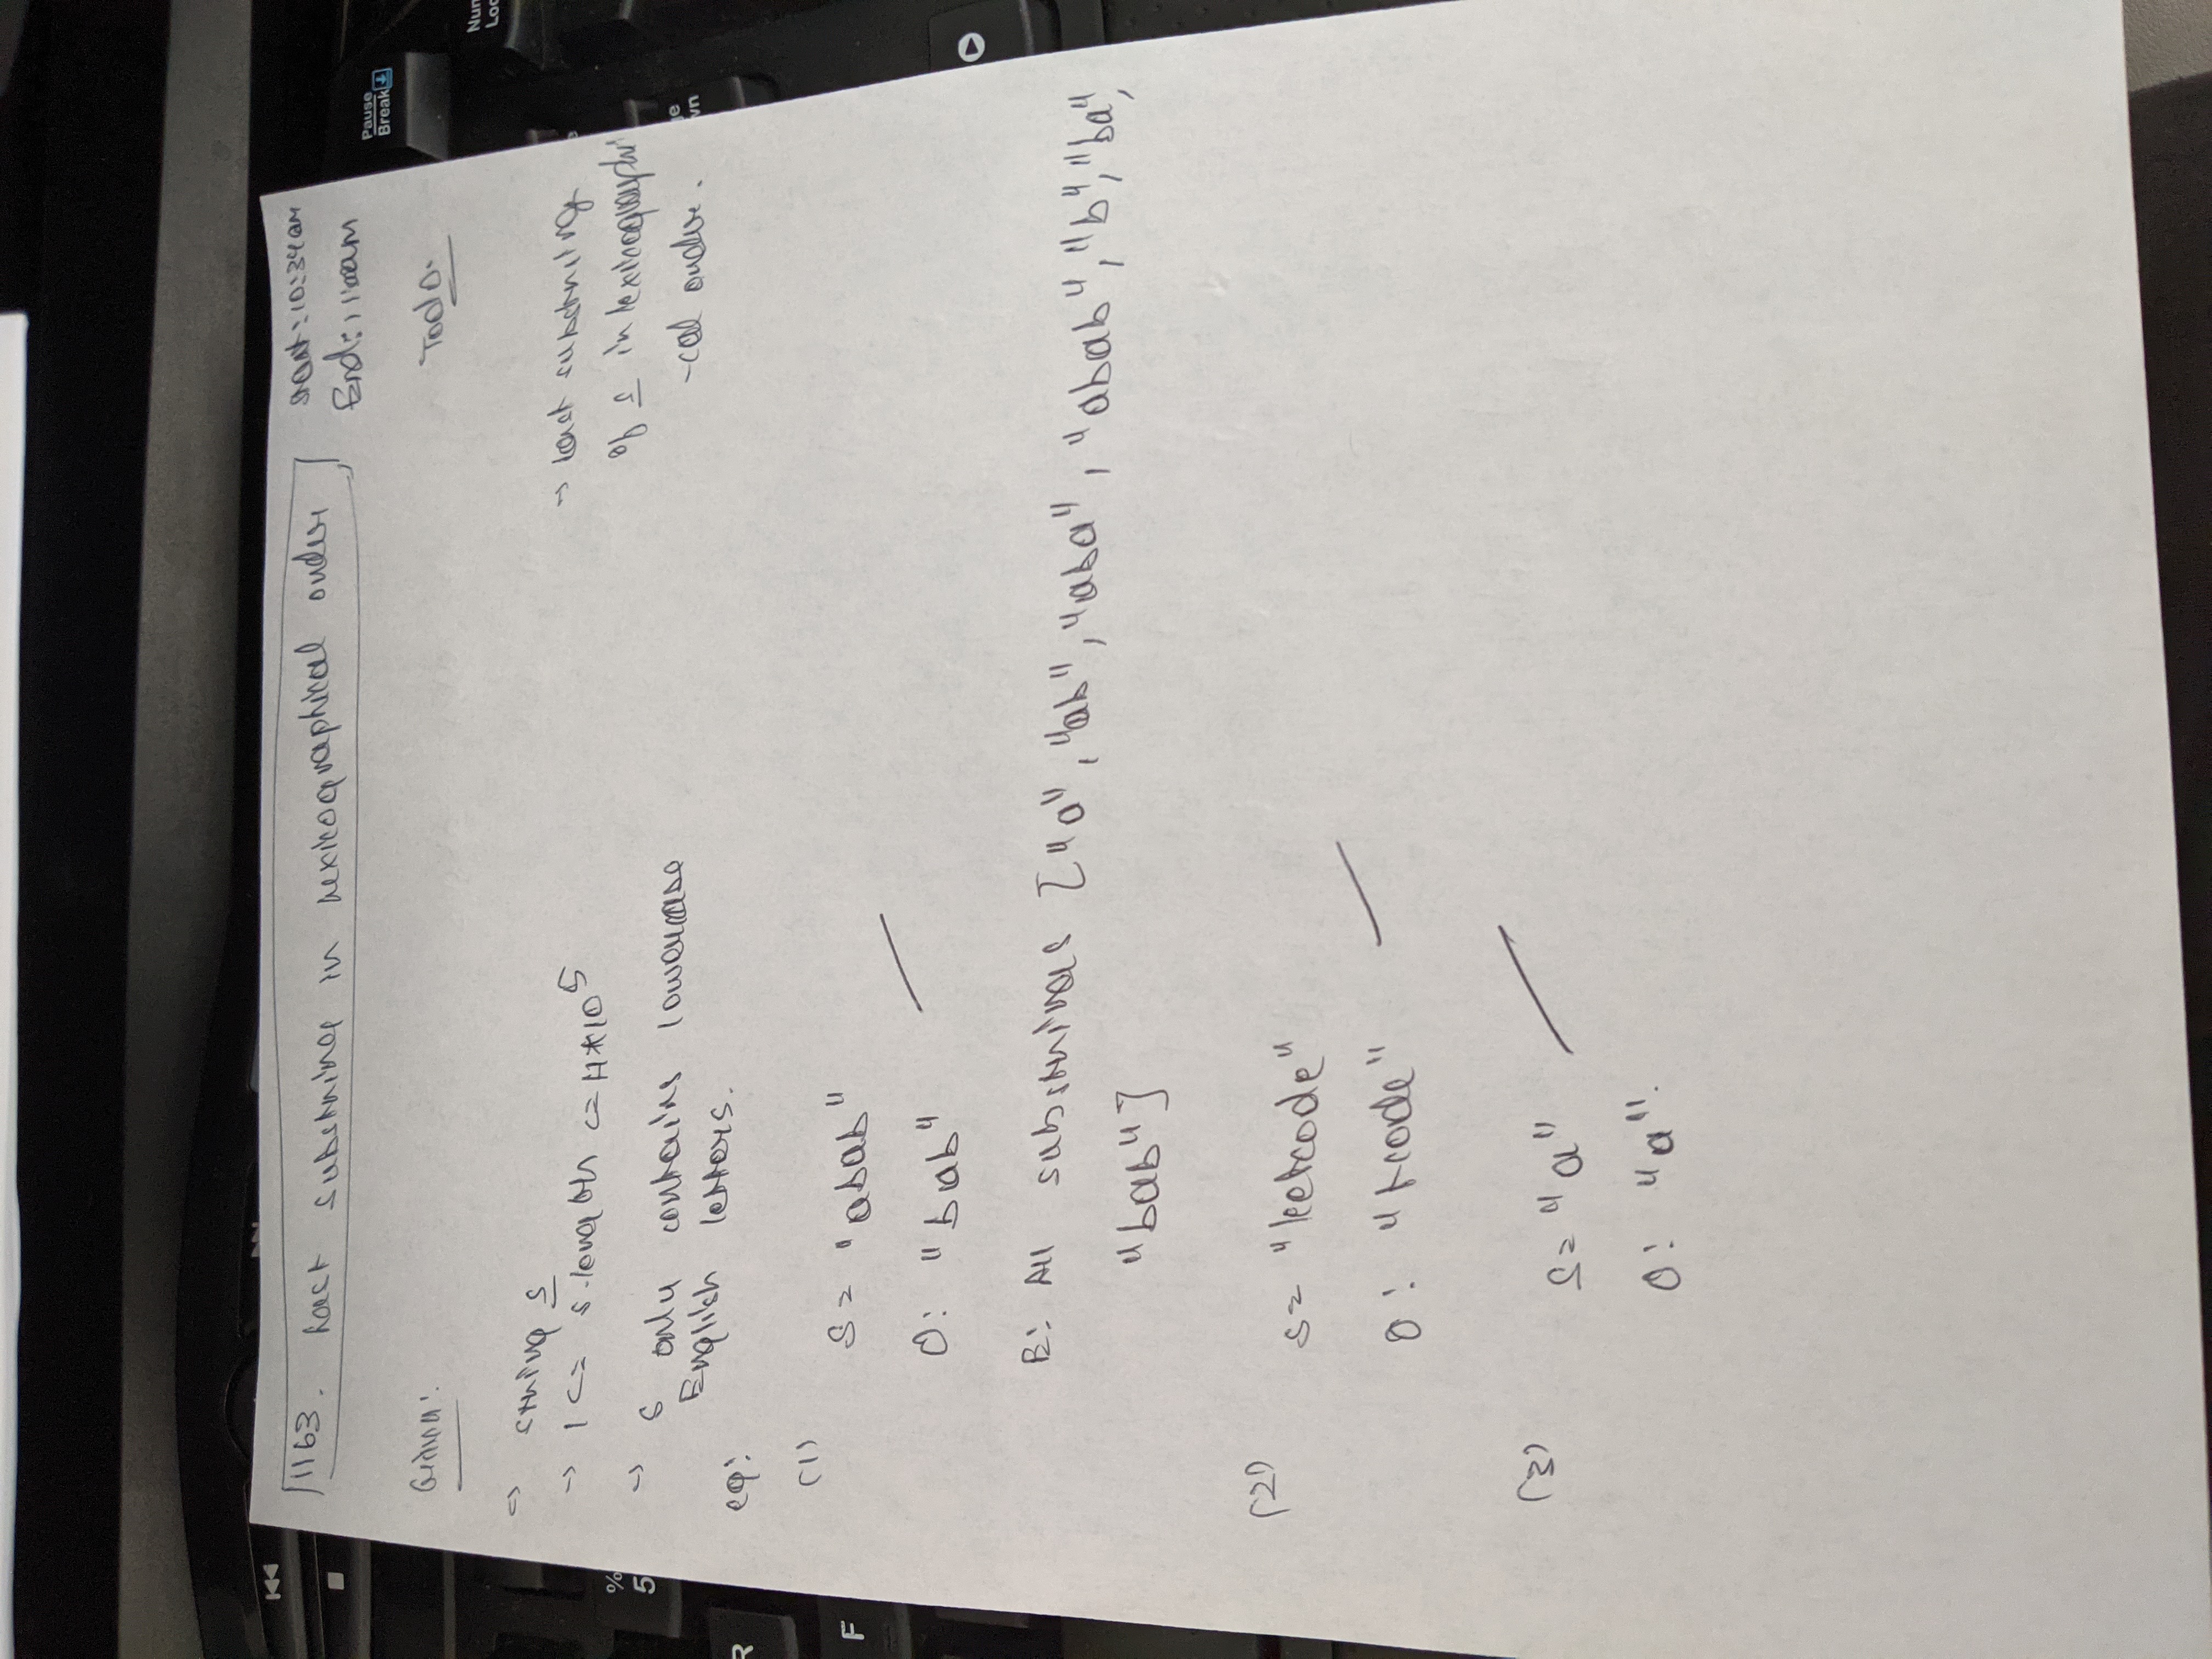 1163. Last substring in lexicographical order
Start: 10:34am
End: 11:00am
Given:
Todo:
-> string s
-> 1 <= s.length <= 4*10^5
-> s only contains lowercase
English letters.
-> last substring
of s in lexicographi
-cal order.
eg:
(1)
S = "abab"
O: "bab"
E: All substrings ["a", "ab", "aba", "abab", "b", "ba",
"bab"]
(2)
S = "leetcode"
O: "tcode"
(3)
S = "a"
O: "a".
Pause
Break
Num
Loc
%
5
R
F